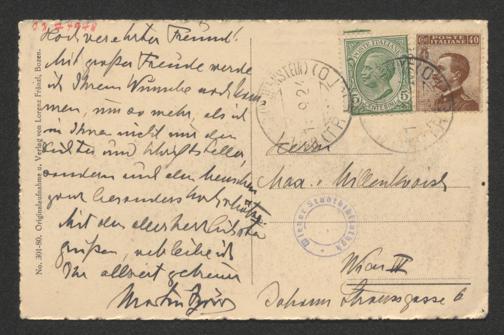 Hochverehrter Freund!
Mit großer Freude werde
ich Ihrem Wunsche nachkom
men, um so mehr, als ich
in Ihnen nicht nur den
Dichter und Schriftsteller,
sondern auch den Menschen
ganz besonders hochschätze.
Mit den allerherzlichsten
Grüßen, verbleibe ich
Ihr allzeit getreuer
Martin
No. 301-80. Originalaufnahme u. Verlag von Lorenz Fränzl, Bozen.
POSTE ITALIANE
5
40
Herrn
Max v. Millenkovich
Wiener Stadtbibliothek
Wien IV
Johann Straussgasse 6